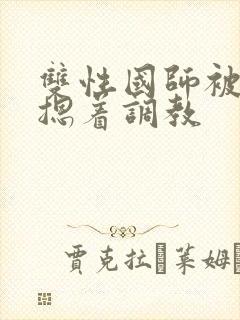 雙性國師被
摁着調教
賈克拉 萊姆